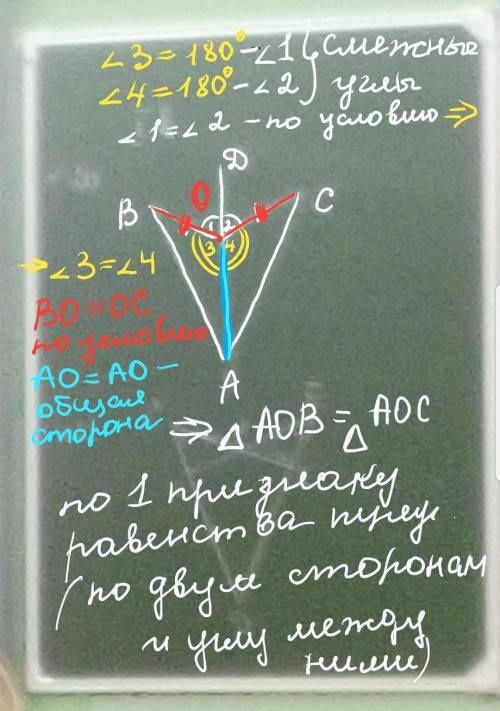 ∠3=180°-∠1 } смежные
∠4=180°-∠2 } углы
∠1=∠2 - по условию ⇒
D
B O C
1 2
3 4
→ ∠3=∠4
BO=OC
по условию
AO=AO -
общая
сторона
A
⇒ △AOB = △AOC
по 1 признаку
равенства треуг.
(по двум сторонам
и углу между
ними)